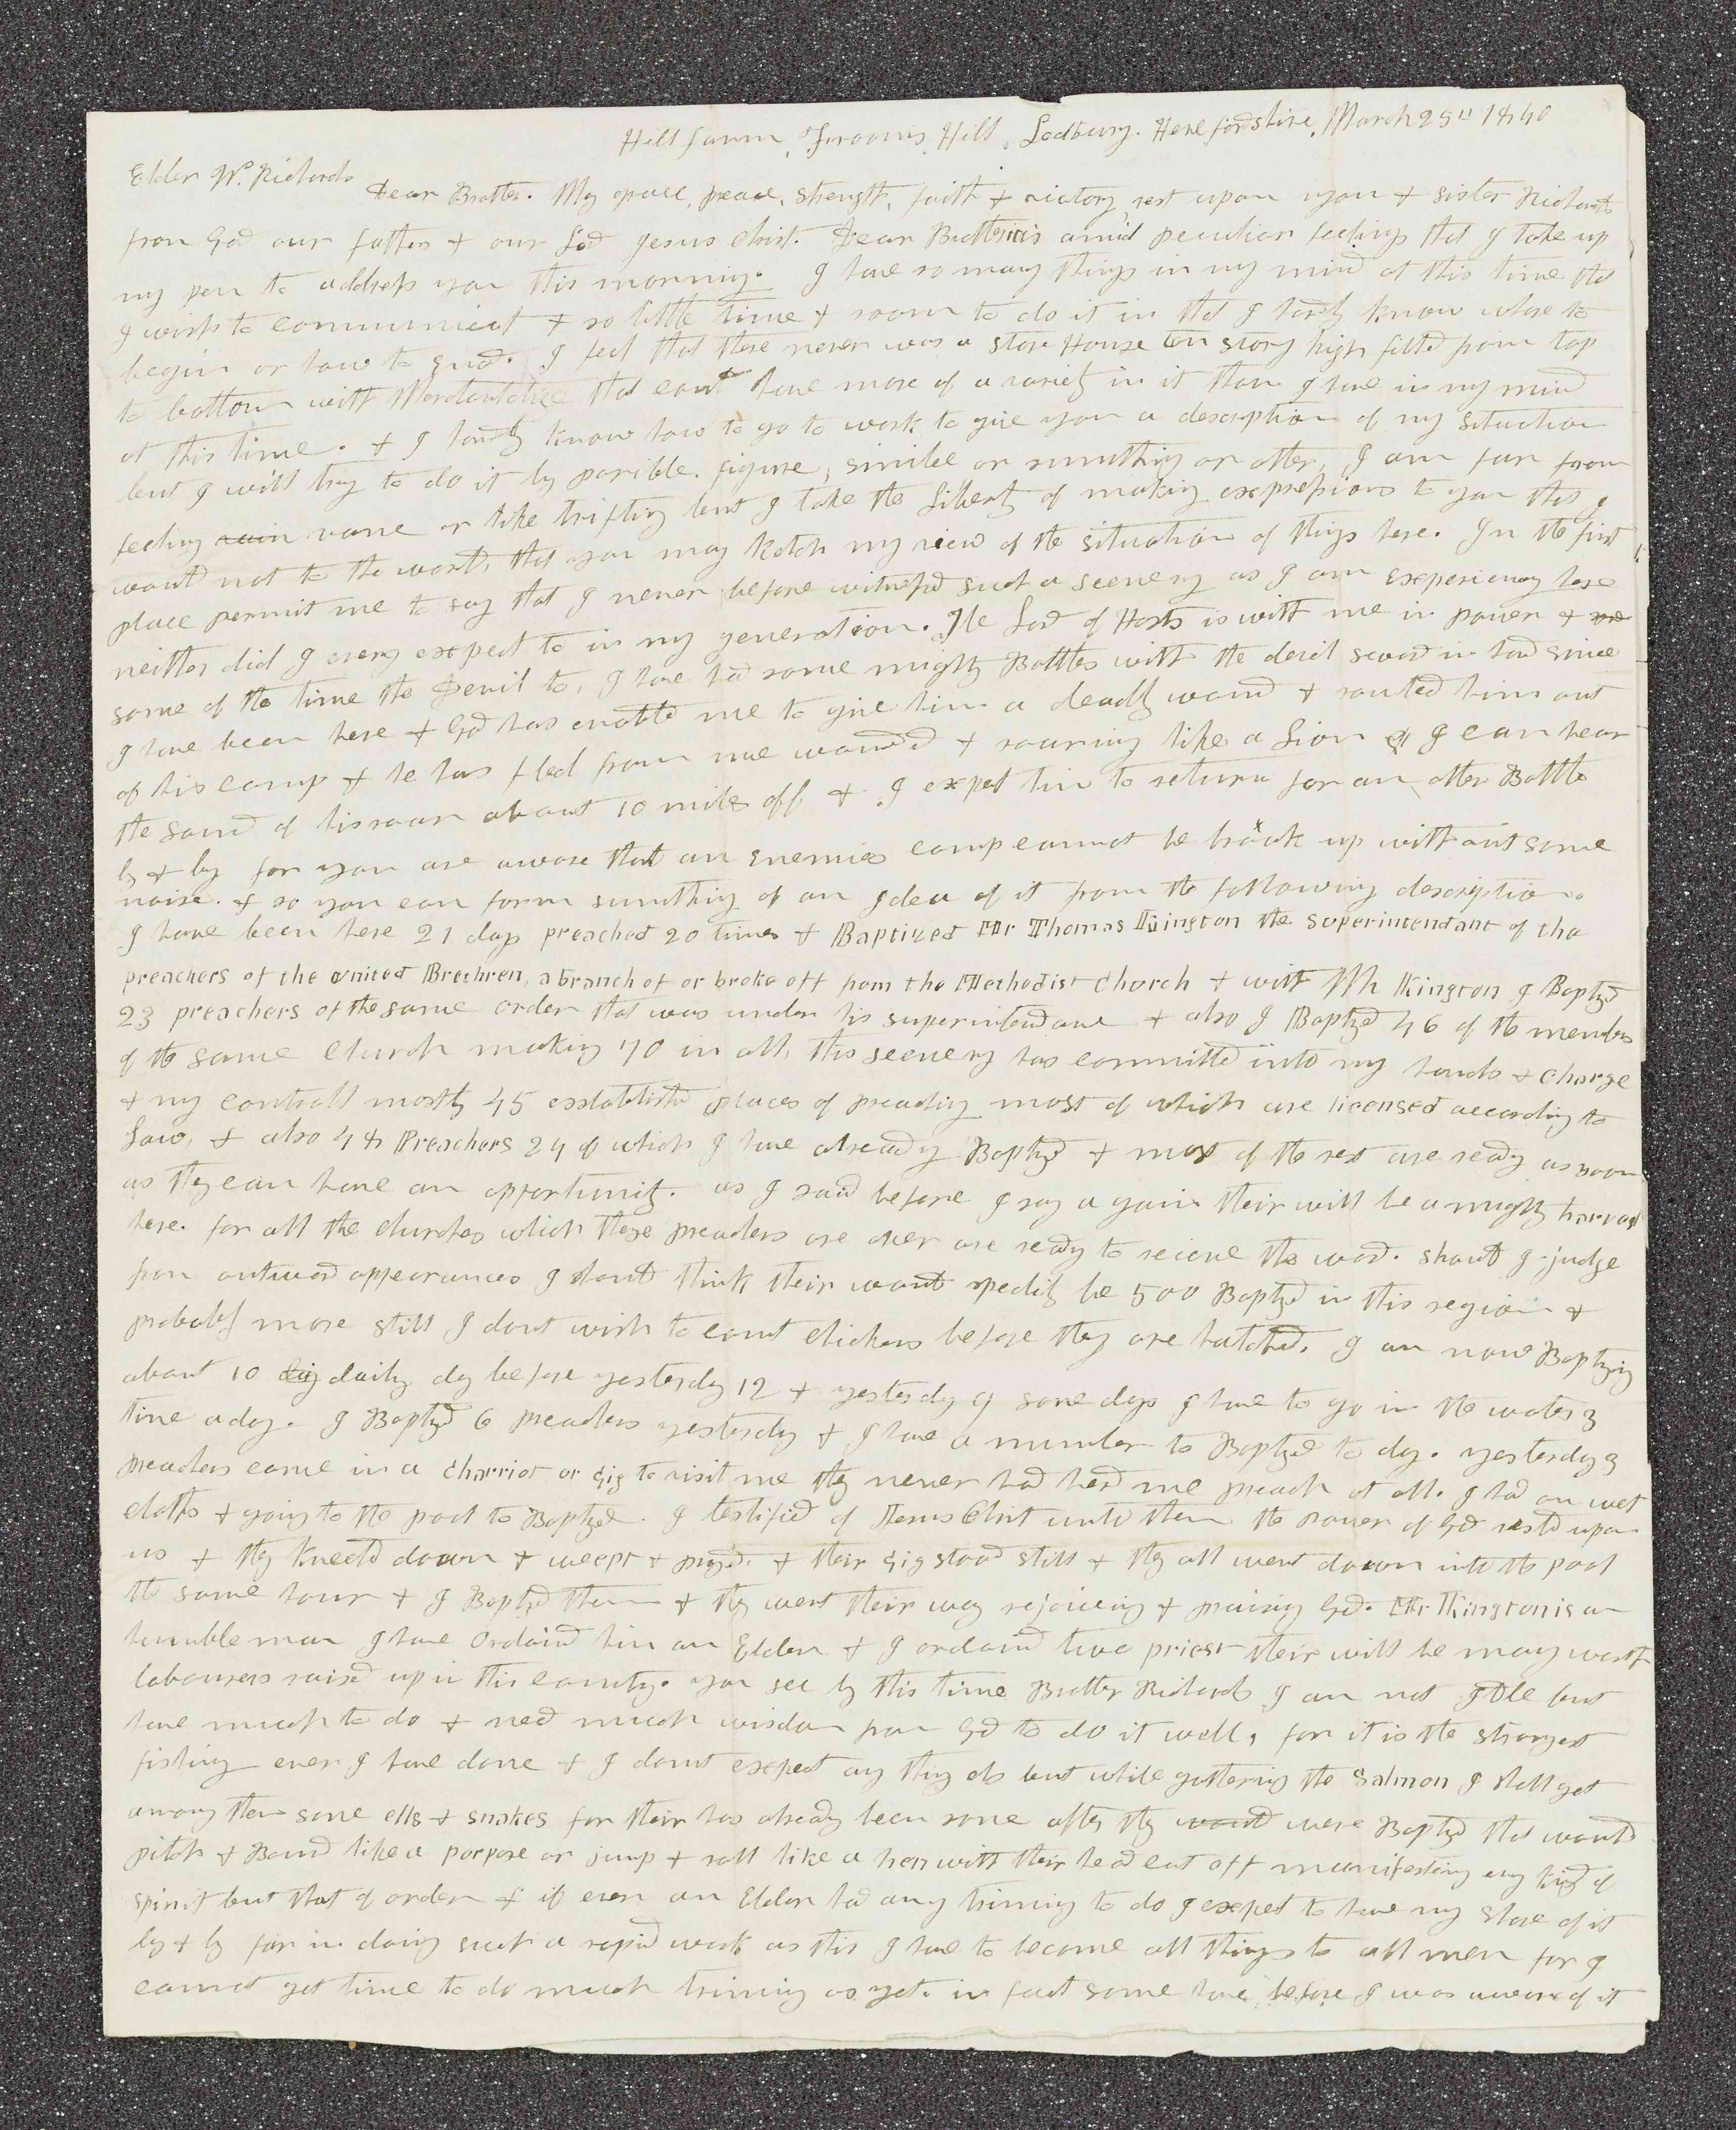 Hill farm, Frooms Hill, Ledbury. Herefordshire, March 25th 1840
Elder W. Richards
Dear Brother. May grace, peace, strength, faith & victory rest upon you & sister Richards
from God our father & our Lord Jesus Christ. Dear Brother it is amid peculiar feelings that I take up
my pen to address you this morning. I have so many things in my mind at this time that
I wish to communicat & so little time & room to do it in that I hardly know whare to
begin or how to End. I feel that there never was a store House ten story high filled from top
to bottom with Merchantdize that could have more of a variety in it than I have in my mind
at this time. & I hardly know how to go to work to give you a description of my situation
but I will try to do it by parible. figure, similee or sumthing or other, I am far from
feeling vain vane or like trifling but I take the liberty of making expressions to you that I
would not to the world, that you may ketch my view of the situation of things here. In the first
place permit me to say that I never before witnessed such a scenery as I am experiencing here
neither did I every expect to in my generation. The Lord of Hosts is with me in power &
some of the time the Devil to, I have had some mighty Battles with the devil sword in hand since
I have been here & God has enabled me to give him a deadly wound & routed him out
of his camp & he has fled from me wounded & roaring like a Lion & I can hear
the sound of his roar about 10 miles off & I expet him to return for an other Battle
by & by for you are aware that an enemies camp cannot be broak up without some
noise. & so you can form sumthing of an Idea of it from the following description.
I have been here 21 days preached 20 times & Baptized Mr Thomas Kington the superintendant of the
preachers of the United Brethren, a branch of or broke off from the Methodist Church & with Mr Kington I Baptized
23 preachers of the same order that was under his superintendane & also I Baptized 46 of the members
of the same Church making 70 in all, this scenery has committed into my hands & charge
& my controll mostly 45 established places of preaching most of which are licensed according to
Law, & also 48 Preachers 24 of which I have already Baptized & most of the rest are ready as soon
as they can have an opportunity. as I said before I say again their will be a mighty harvest
here. for all the churches which these preachers are over are ready to recieve the word. should I judge
from outward appearances I should think their would speedily be 500 Baptized in this region &
probably more still I dont wish to count chickens before they are hatched. I am now Baptizing
about 10 daily day before yesterday 12 & yesterday 9 some days I have to go in the water 3
time a day. I Baptized 6 preachers yesterday & I have a number to Baptized to day. yesterday 3
preachers came in a charriot or gig to visit me they never had herd me preach at all. I had on wet
cloths & going to the pool to Baptized. I testified of Jesus Christ unto them the power of God rested upon
us & they kneeled down & weept & prayed. & their gig stood still & they all went down into the pool
the same hour & I Baptized them & they went their way rejoiceing & praising God. Mr Kington is an
humble man I have Ordained him an Elder & I ordained two priest their will be many worth
labourers raised up in this country. you see by this time Brother Richards I am not Idle but
have much to do & need much wisdom from God to do it well, for it is the strangest
fishing ever I have done & I dont expect any thing els but while gathering the Salmon I shall get
among them some ells & snakes for their has already been some after they would were Baptized that would
pitch & Bound like a porpose or jump & roll like a hen with their head cut off manifesting any kind of
spirit but that of order & if ever an Elder had any triming to do I expet to have my share of it
by & by for in doing such a rapid work as this I have to become all things to all men for I
cannot get time to do much triming as yet. in fact some have before I was aware of it